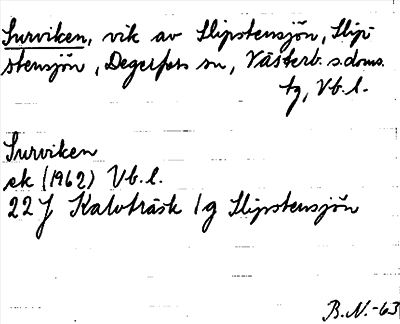 Surviken, vik av Slipstensjön, Slip-
stensjön, Degerfors sn, Västerb. s. doms.
tg, Vb. l.
Surviken
ek (1962) Vb. l.
22 J Kalvträsk 1 g Slipstensjön
B.N. -63